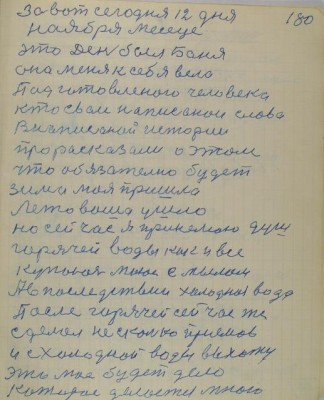 За вот сегодня 12 дня 180
ноября месеце
это Ден был Баня
она меня к себя вела
Подготовленого человека
кто свои написаной слова
В написаной истории
про расказали о этом
что обязателно будет
зима моя пришла
Лето ваша ушло
но сей час я принемаю душ
горячей воды как и все
купаюся мою с мылом
Но последствии холодная вода
После горячей сей час же
сделал несколко приемов
и с холодной воды выхожу
это мое будет дело
Которое делается много